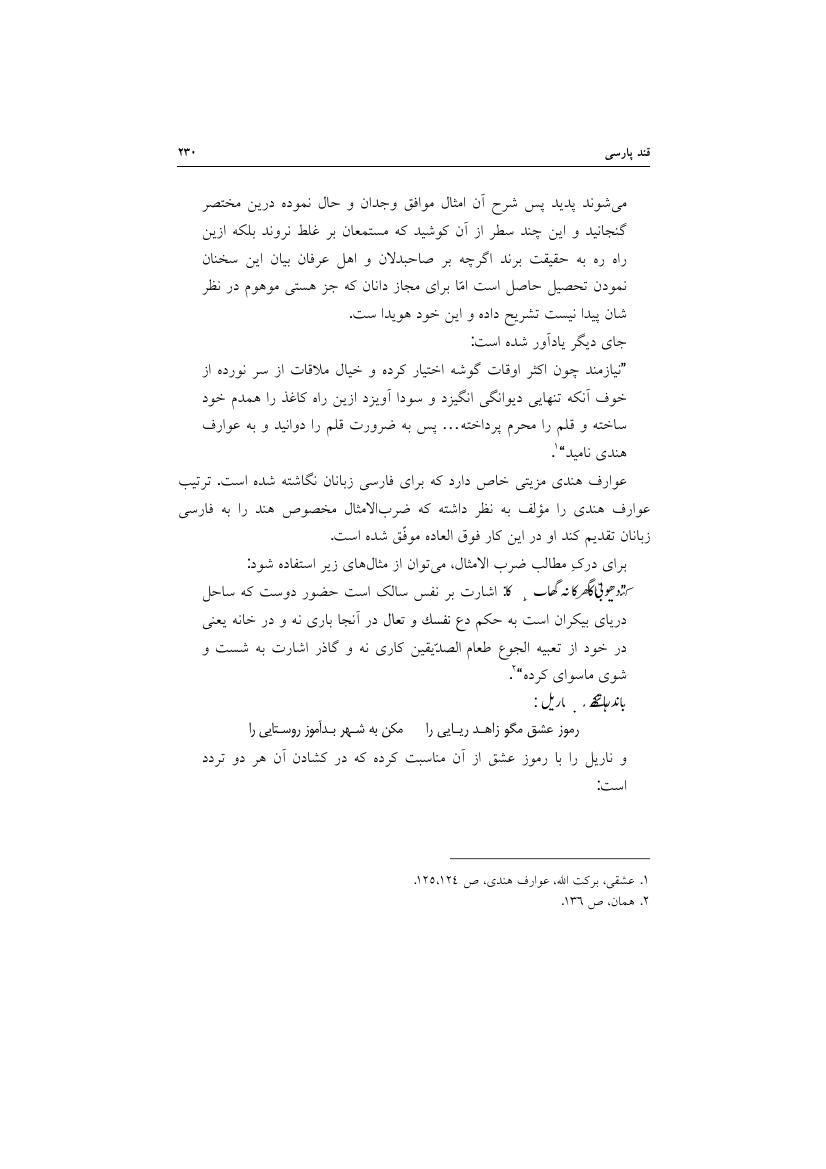 قند پارسی ۲۳۰
می‌شوند پدید پس شرح آن امثال موافق وجدان و حال نموده درین مختصر
گنجانید و این چند سطر از آن کوشید که مستمعان بر غلط نروند بلکه ازین
راه ره به حقیقت برند اگرچه بر صاحبدلان و اهل عرفان بیان این سخنان
نمودن تحصیل حاصل است امّا برای مجاز دانان که جز هستی موهوم در نظر
شان پیدا نیست تشریح داده و این خود هویدا ست.
جای دیگر یادآور شده است:
”نیازمند چون اکثر اوقات گوشه اختیار کرده و خیال ملاقات از سر نورده از
خوف آنکه تنهایی دیوانگی انگیزد و سودا آویزد ازین راه کاغذ را همدم خود
ساخته و قلم را محرم پرداخته... پس به ضرورت قلم را دوانید و به عوارف
هندی نامید“۱.
عوارف هندی مزیتی خاص دارد که برای فارسی زبانان نگاشته شده است. ترتیب
عوارف هندی را مؤلف به نظر داشته که ضرب‌الامثال مخصوص هند را به فارسی
زبانان تقدیم کند او در این کار فوق العاده موفّق شده است.
برای درکِ مطالب ضرب الامثال، می‌توان از مثال‌های زیر استفاده شود:
دھوبی کا گھر کا نہ گھاٹ کا: اشارت بر نفس سالک است حضور دوست که ساحل
دریای بیکران است به حکم دع نفسك و تعال در آنجا باری نه و در خانه یعنی
در خود از تعبیه الجوع طعام الصدّیقین کاری نه و گاذر اشارت به شست و
شوی ماسوای کرده“۲.
باندر ناریل :
رموز عشق مگو زاهـد ریـایی را مکن به شـهر بـدآموز روسـتایی را
و ناریل را با رموز عشق از آن مناسبت کرده که در کشادن آن هر دو تردد
است:
۱. عشقی، برکت الله، عوارف هندی، ص ۱۲۵،۱۲٤.
۲. همان، ص ۱۳٦.